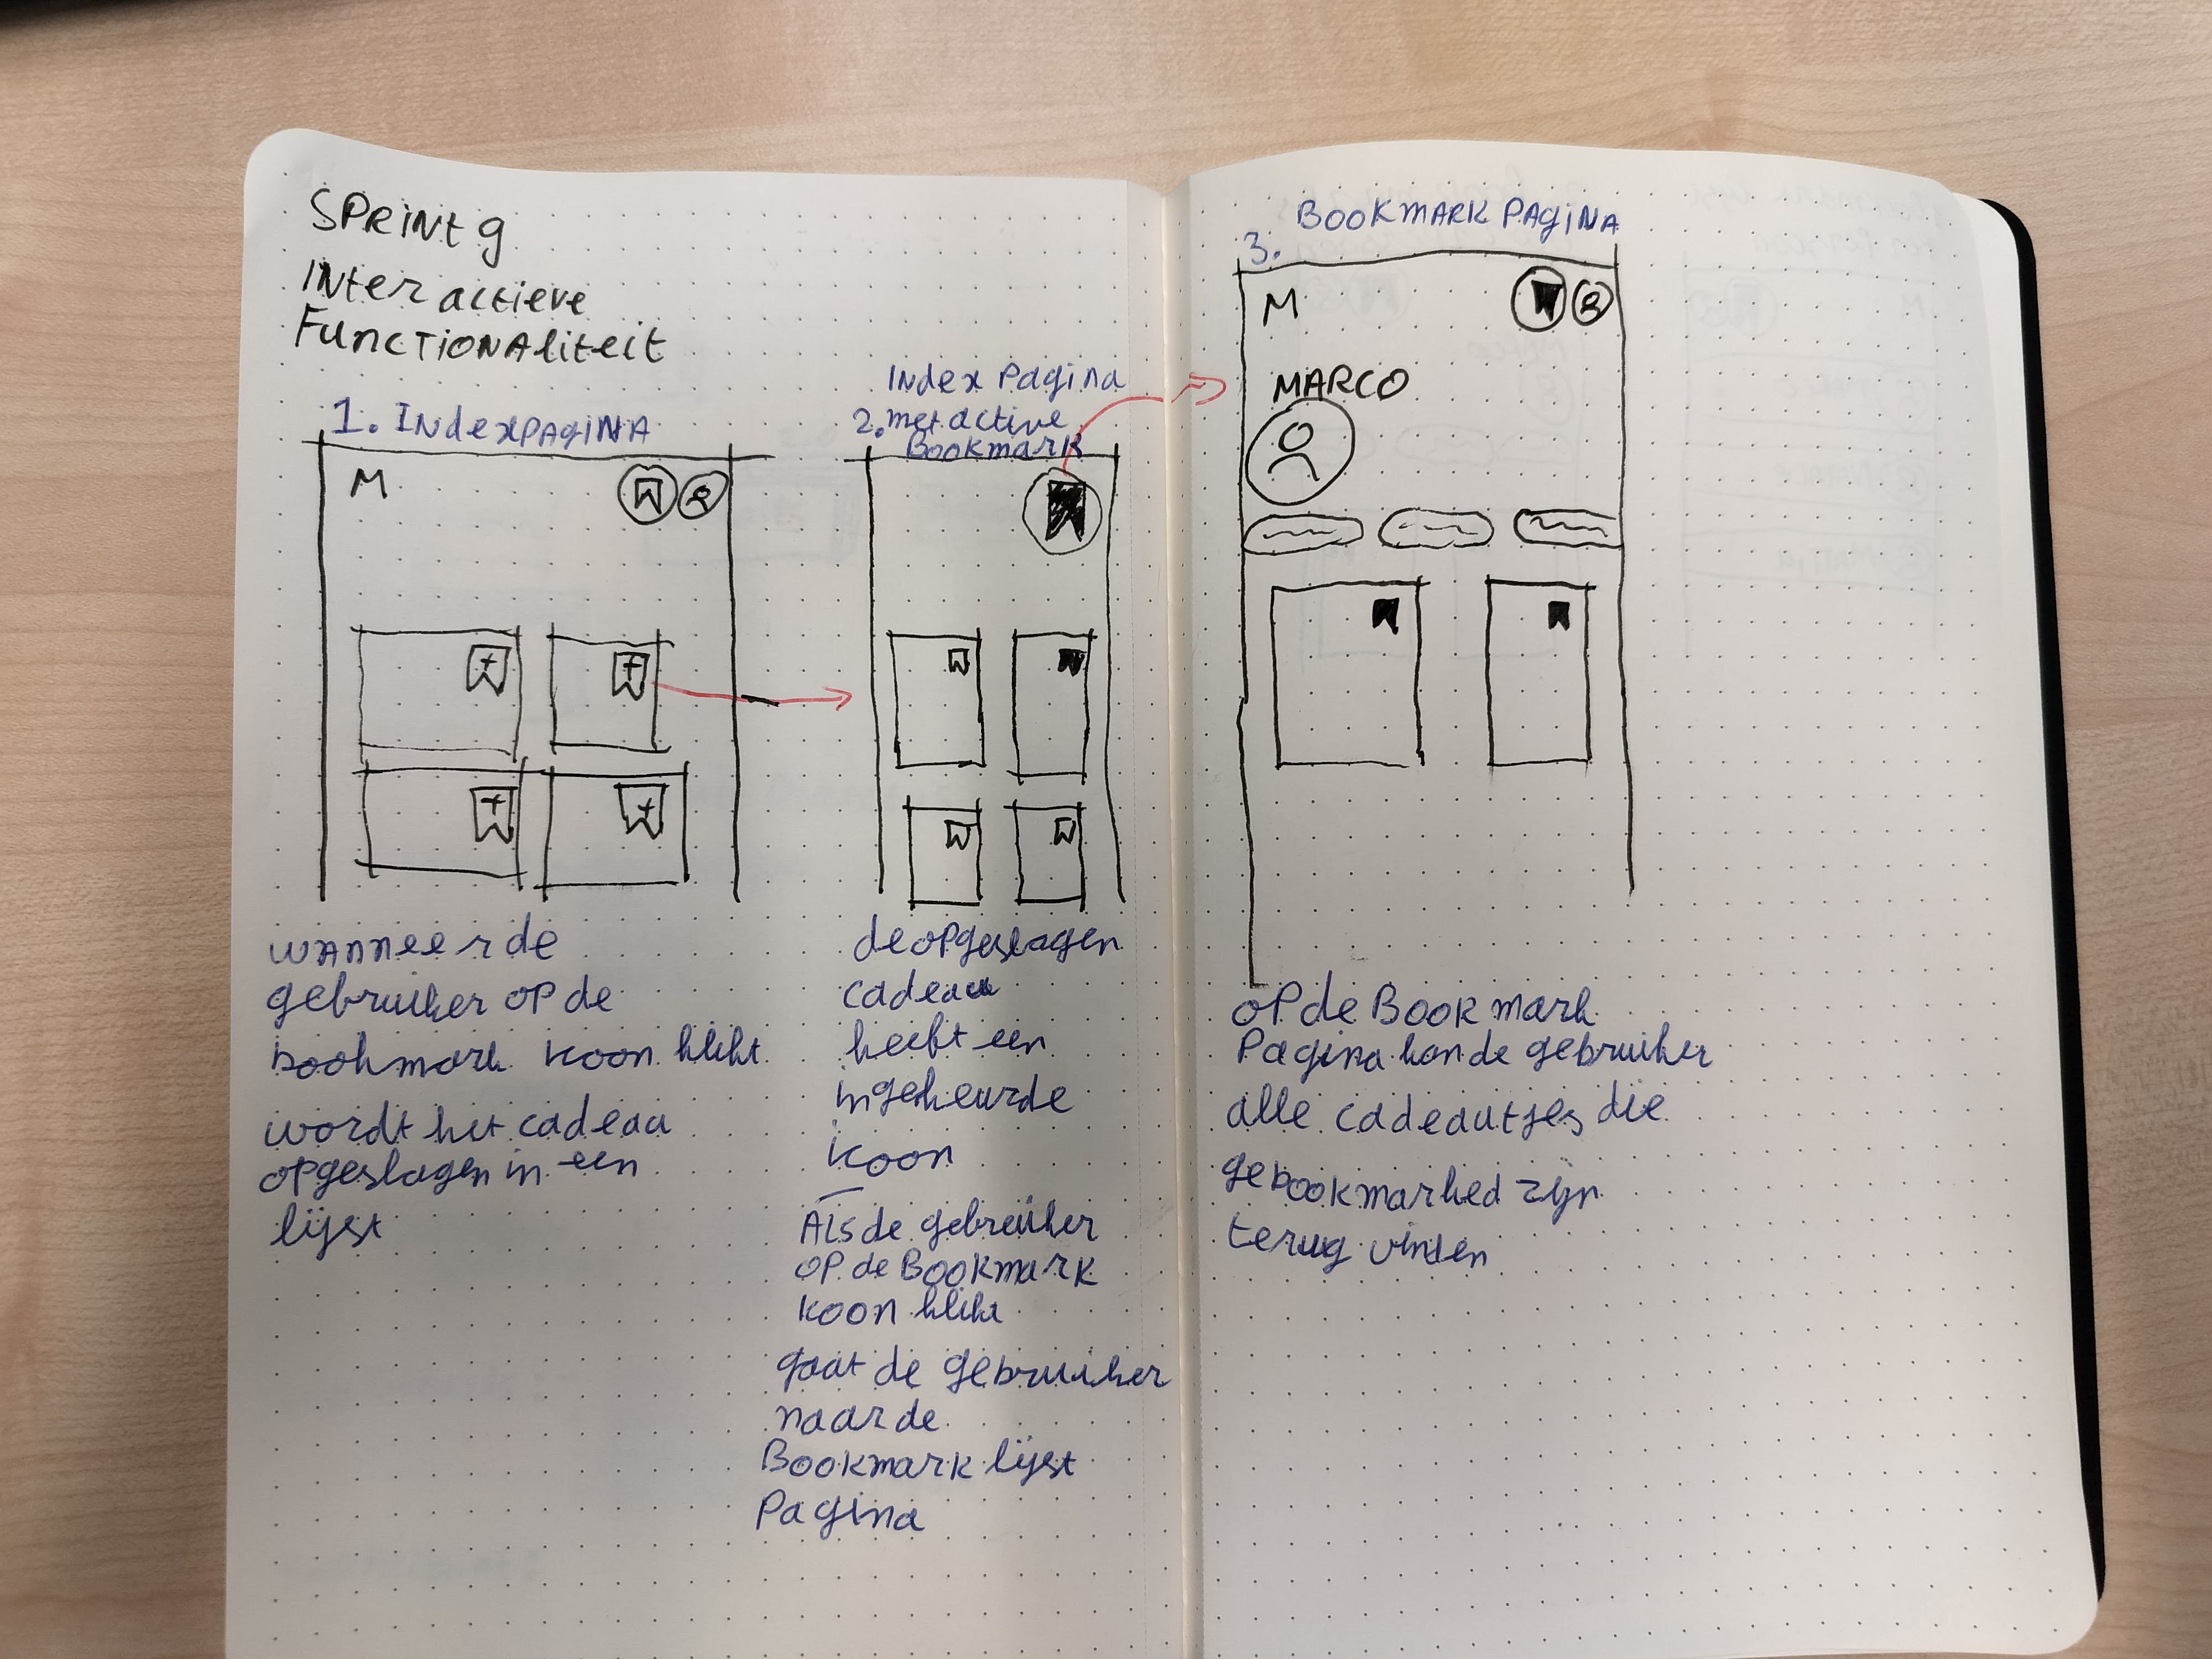 SPRINT 9
INteractieve
FUNCTIONAliteit
1. INdexPAgiNA
M
wanneer de
gebruiker op de
bookmark icoon klikt
wordt het cadeau
opgeslagen in een
lijst
INdex Pagina
2. met active
Bookmark
de opgeslagen
cadeau
heeft een
ingekeurde
icoon
Als de gebruiker
op de Bookmark
icoon klikt
gaat de gebruiker
naar de
Bookmark lijst
Pagina
3. BOOKMARK PAgiNA
M
MARCO
op de Bookmark
Pagina kan de gebruiker
alle cadeautjes die
gebookmarked zijn
terug vinden